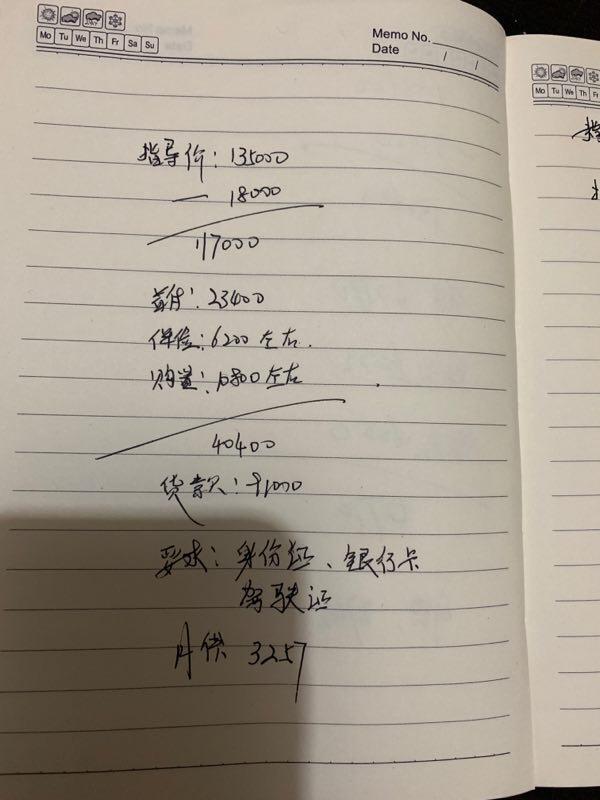 Mo Tu We Th Fr Sa Su
Memo No.
Date / /
指导价：135000
— 18000
117000
首付：23400
保险：6200左右.
购置：10800左右
40400
贷款：91000
要求：身份证、银行卡
驾驶证
月供 3257
Mo Tu We Th Fr